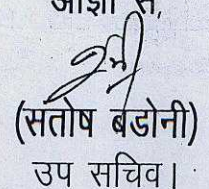 आज्ञा से,
(संतोष बडोनी)
उप सचिव।